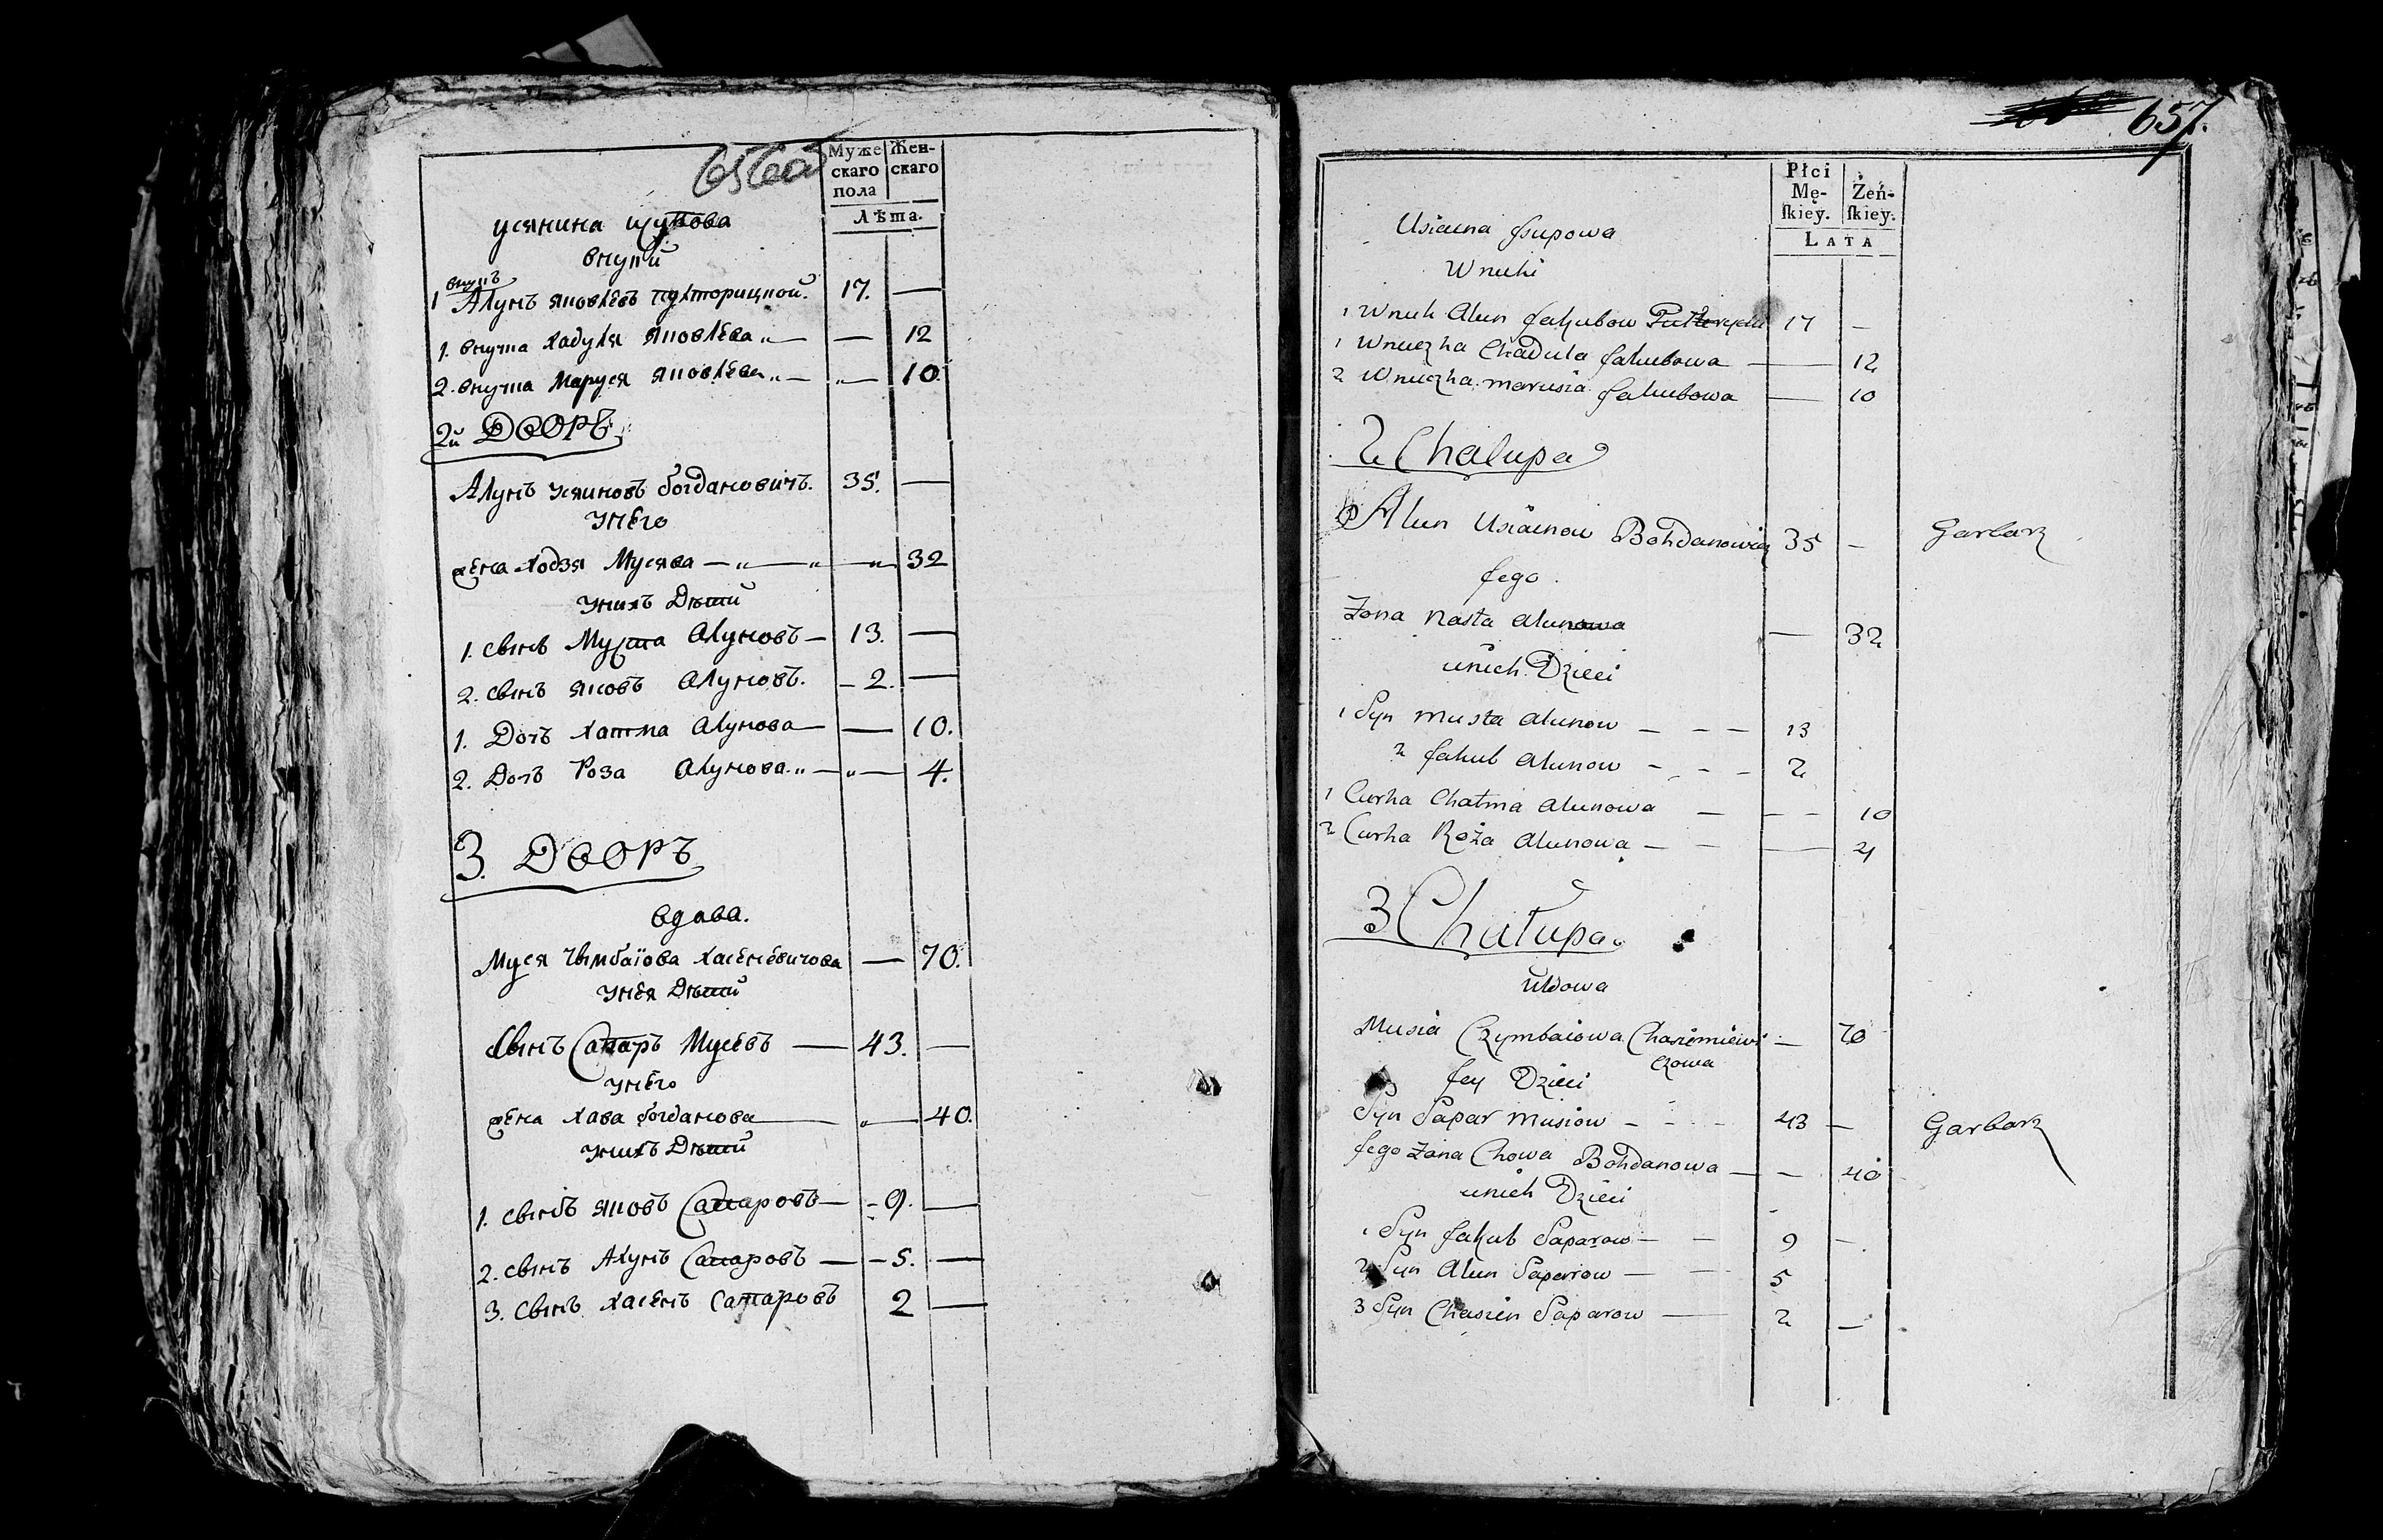 656об
Муже
скаго
пола
Жен-
скаго
Лѣта.
Усяинна Щупова
внуки
внукъ
1 Алунъ Яковлевъ Пулторицкой. 17. —
1. внучка Хадуля Яковлева „ — — 12
2. внучка Маруся Яковлева „ — „ — 10.
2й Дворъ
Алунъ Усяиновъ Богдановичъ. 35. —
У него
жена Ходзя Мусява — „ — „ — „ 32
У нихъ Дѣти
1. сынъ Муста Алуновъ — 13. —
2. сынъ Яковъ Алуновъ. — 2. —
1. Дочь Хатма Алунова — — 10.
2. Дочь Роза Алунова. „ — „ — 4.
3. Дворъ
вдова.
Муся Чымбаiова Хасеневичова — 70.
У нея Дѣти
Сынъ Сапаръ Мусевъ — 43. —
У него
жена Хава Богданова — „ — 40.
У нихъ Дѣти
1. сынъ Яковъ Сапаровъ — - 9. —
2. сынъ Алунъ Сапаровъ — - 5. —
3. сынъ Хасенъ Сапаровъ 2 —
657.
Płci
Mę-
skiey.
Żeń-
skiey.
LATA
Usiaina Jsupowa
Wnuki
1 Wnuk Alun Jakubow 17 —
1 Wnuczka Chadula Jakubowa — — 12
2 Wnuczka Marusia Jakubowa — 10
2 Chalupa
Alun Usiainow Bohdanowicz 35 — Garbarz
Jego
Zona Nasta Alunowa — 32
unich Dzieci
1 Syn Musta Alunow — — — 13
2 Jakub Alunow — — — 2
1 Curka Chatma Alunowa — — — 10
2 Curka Roża Alunowa — — — 4
3 Chałupa
Wdowa
Musia Czymbaiowa Chasieniewi — 70
czowa
Jey Dzieci
Syn Sapar Musiow — — 43 — Garbarz
Jego Zona Chowa Bohdanowa — — 40
unich Dzieci
1 Syn Jakub Saparow — — 9 —
2 Syn Alun Saparow — — 5
3 Syn Chasien Saparow — 2 —